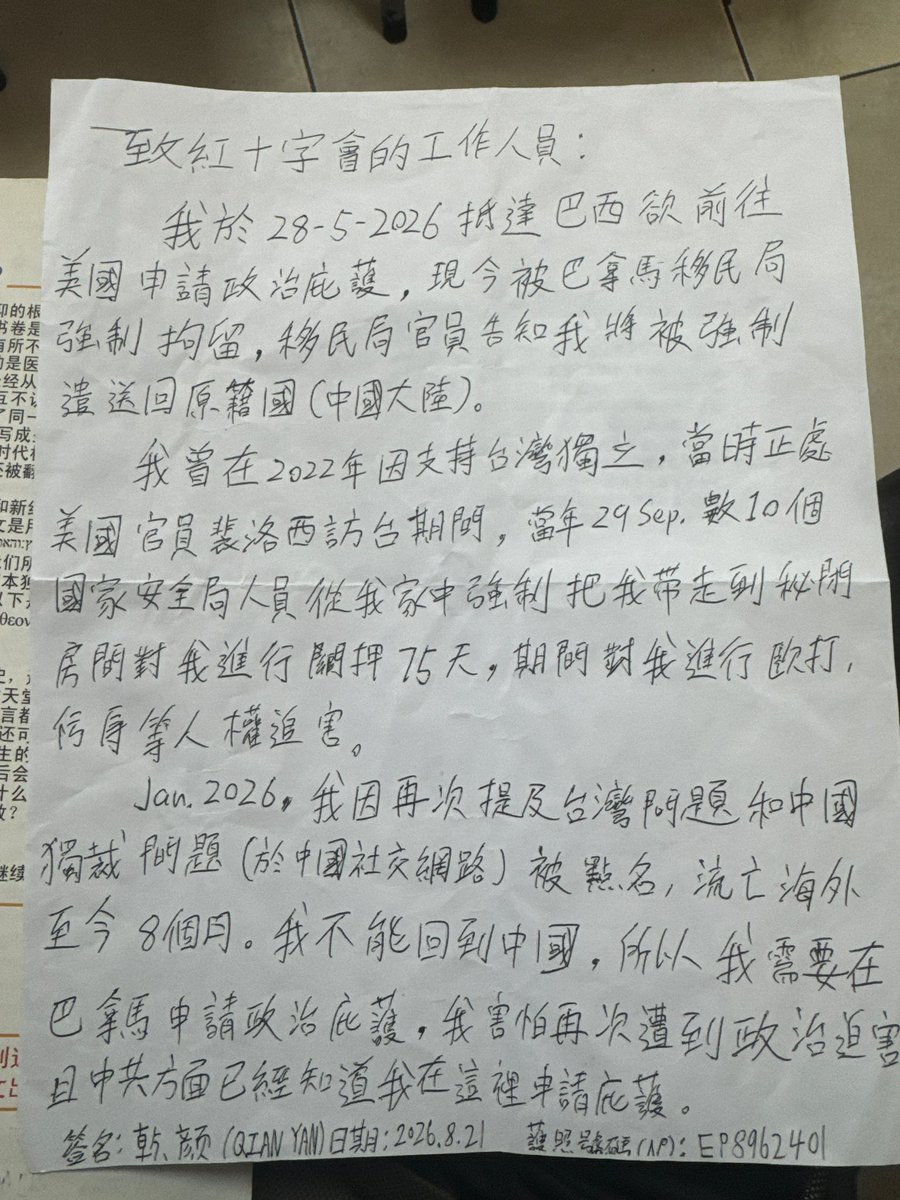 致紅十字會的工作人員：
我於28-5-2026抵達巴西欲前往
美國申請政治庇護，現今被巴拿馬移民局
強制拘留，移民局官員告知我將被強制
遣送回原籍國（中國大陸）。
我曾在2022年因支持台灣獨立，當時正處
美國官員裴洛西訪台期間，當年29 Sep. 數10個
國家安全局人員從我家中強制把我带走到秘閉
房間對我進行關押75天，期間對我進行毆打，
侮辱等人權迫害。
Jan. 2026，我因再次提及台灣問題和中國
獨裁問題（於中國社交網路）被點名，流亡海外
至今8個月。我不能回到中國，所以我需要在
巴拿馬申請政治庇護，我害怕再次遭到政治迫害
且中共方面已經知道我在這裡申請庇護。
签名：颜 (QIAN YAN) 日期：2026.8.21 護照號碼：EP8962401